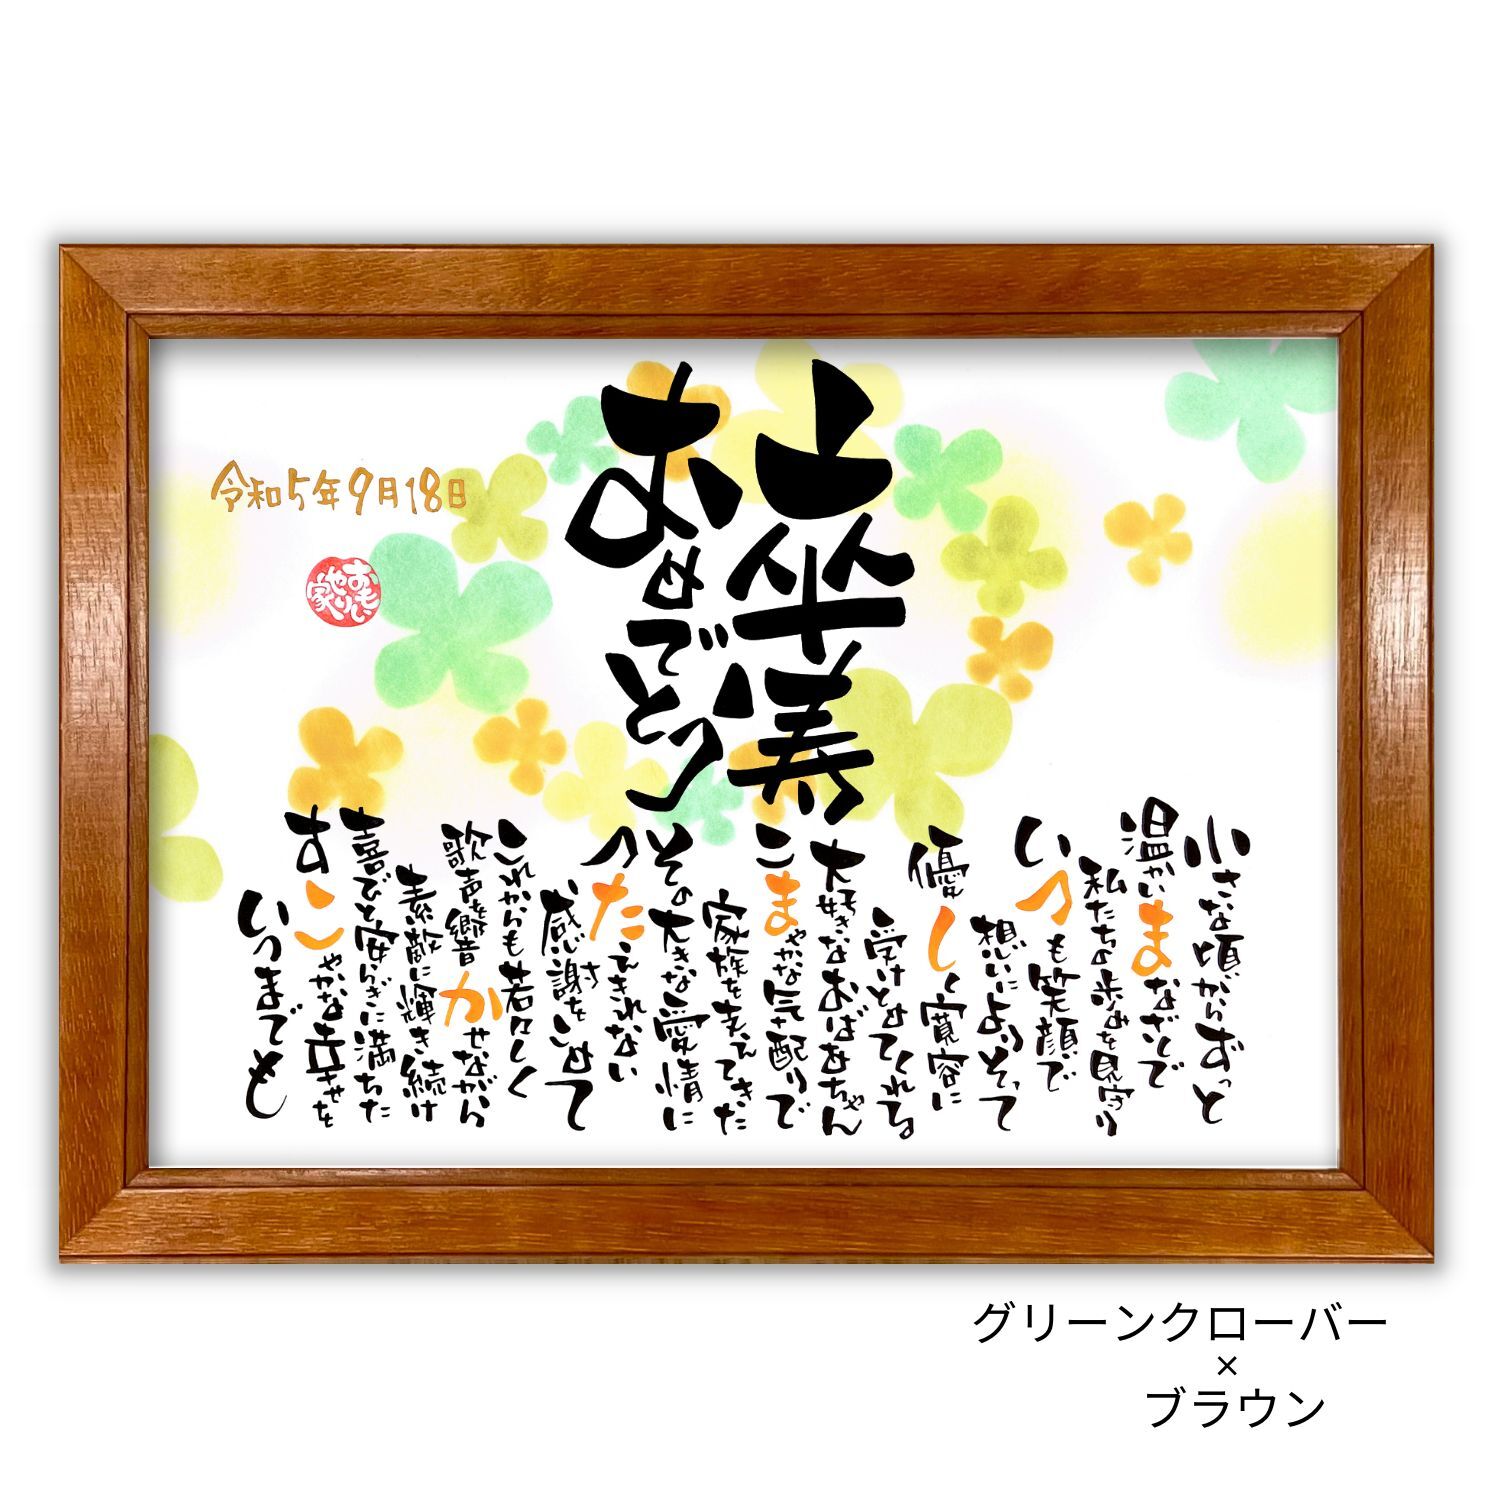 卒寿
おめでとう
小さな頃からずっと
温かいまなざしで
私たちの歩みを見守り
いつも笑顔で
想いによりそって
優しく寛容に
受けとめてくれる
大好きなおばあちゃん
こまやかな気配りで
家族を支えてきた
その大きな愛情に
つたえきれない
感謝をこめて
これからも若々しく
歌声を響かせながら
素敵に輝き続け
喜びと安らぎに満ちた
すこやかな幸せを
いつまでも
令和5年9月18日
おもいやり家
グリーンクローバー
×
ブラウン